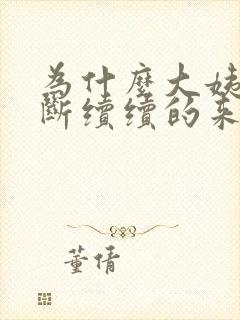 為什麼大姨
斷續續的來
董倩